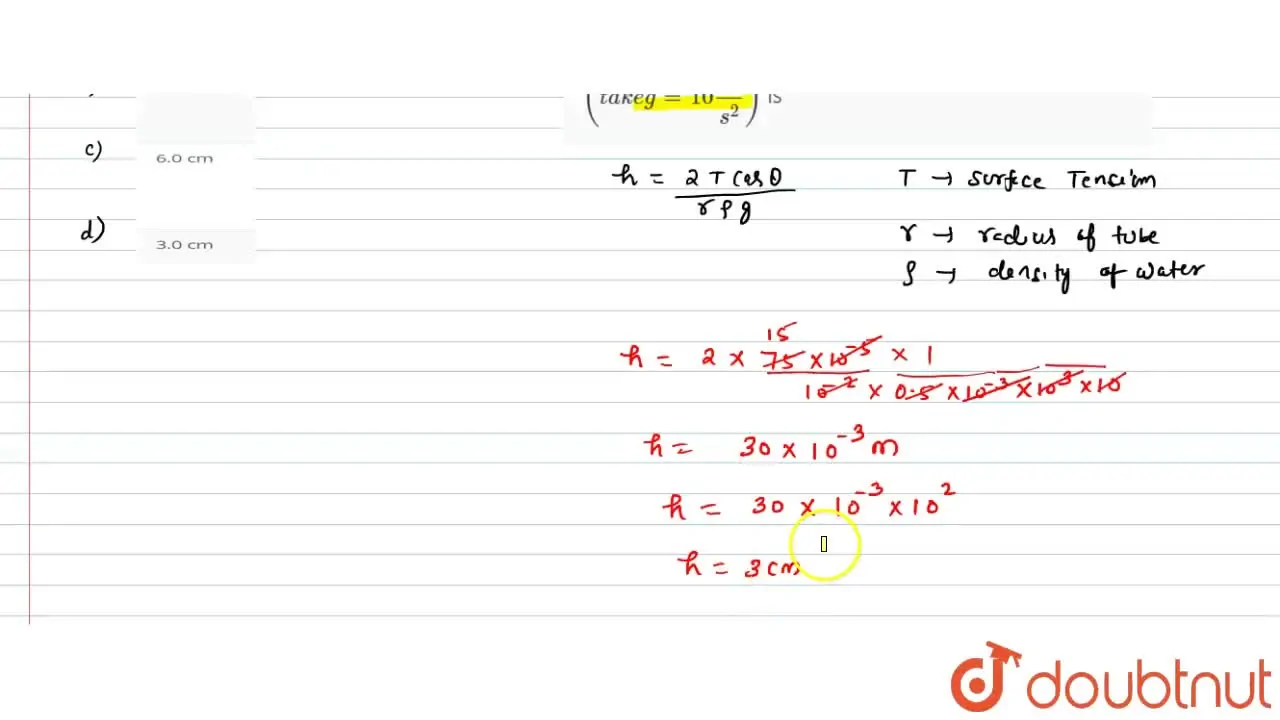 (take g = 10 / s²) is
c)
6.0 cm
h = 2 T cos θ / r ρ g
T → Surface Tension
d)
3.0 cm
r → radius of tube
ρ → density of water
15
h = 2 × 75 × 10⁻⁵ × 1 / 10⁻² × 0.5 × 10⁻³ × 10³ × 10
h = 30 × 10⁻³ m
h = 30 × 10⁻³ × 10²
h = 3 cm
doubtnut